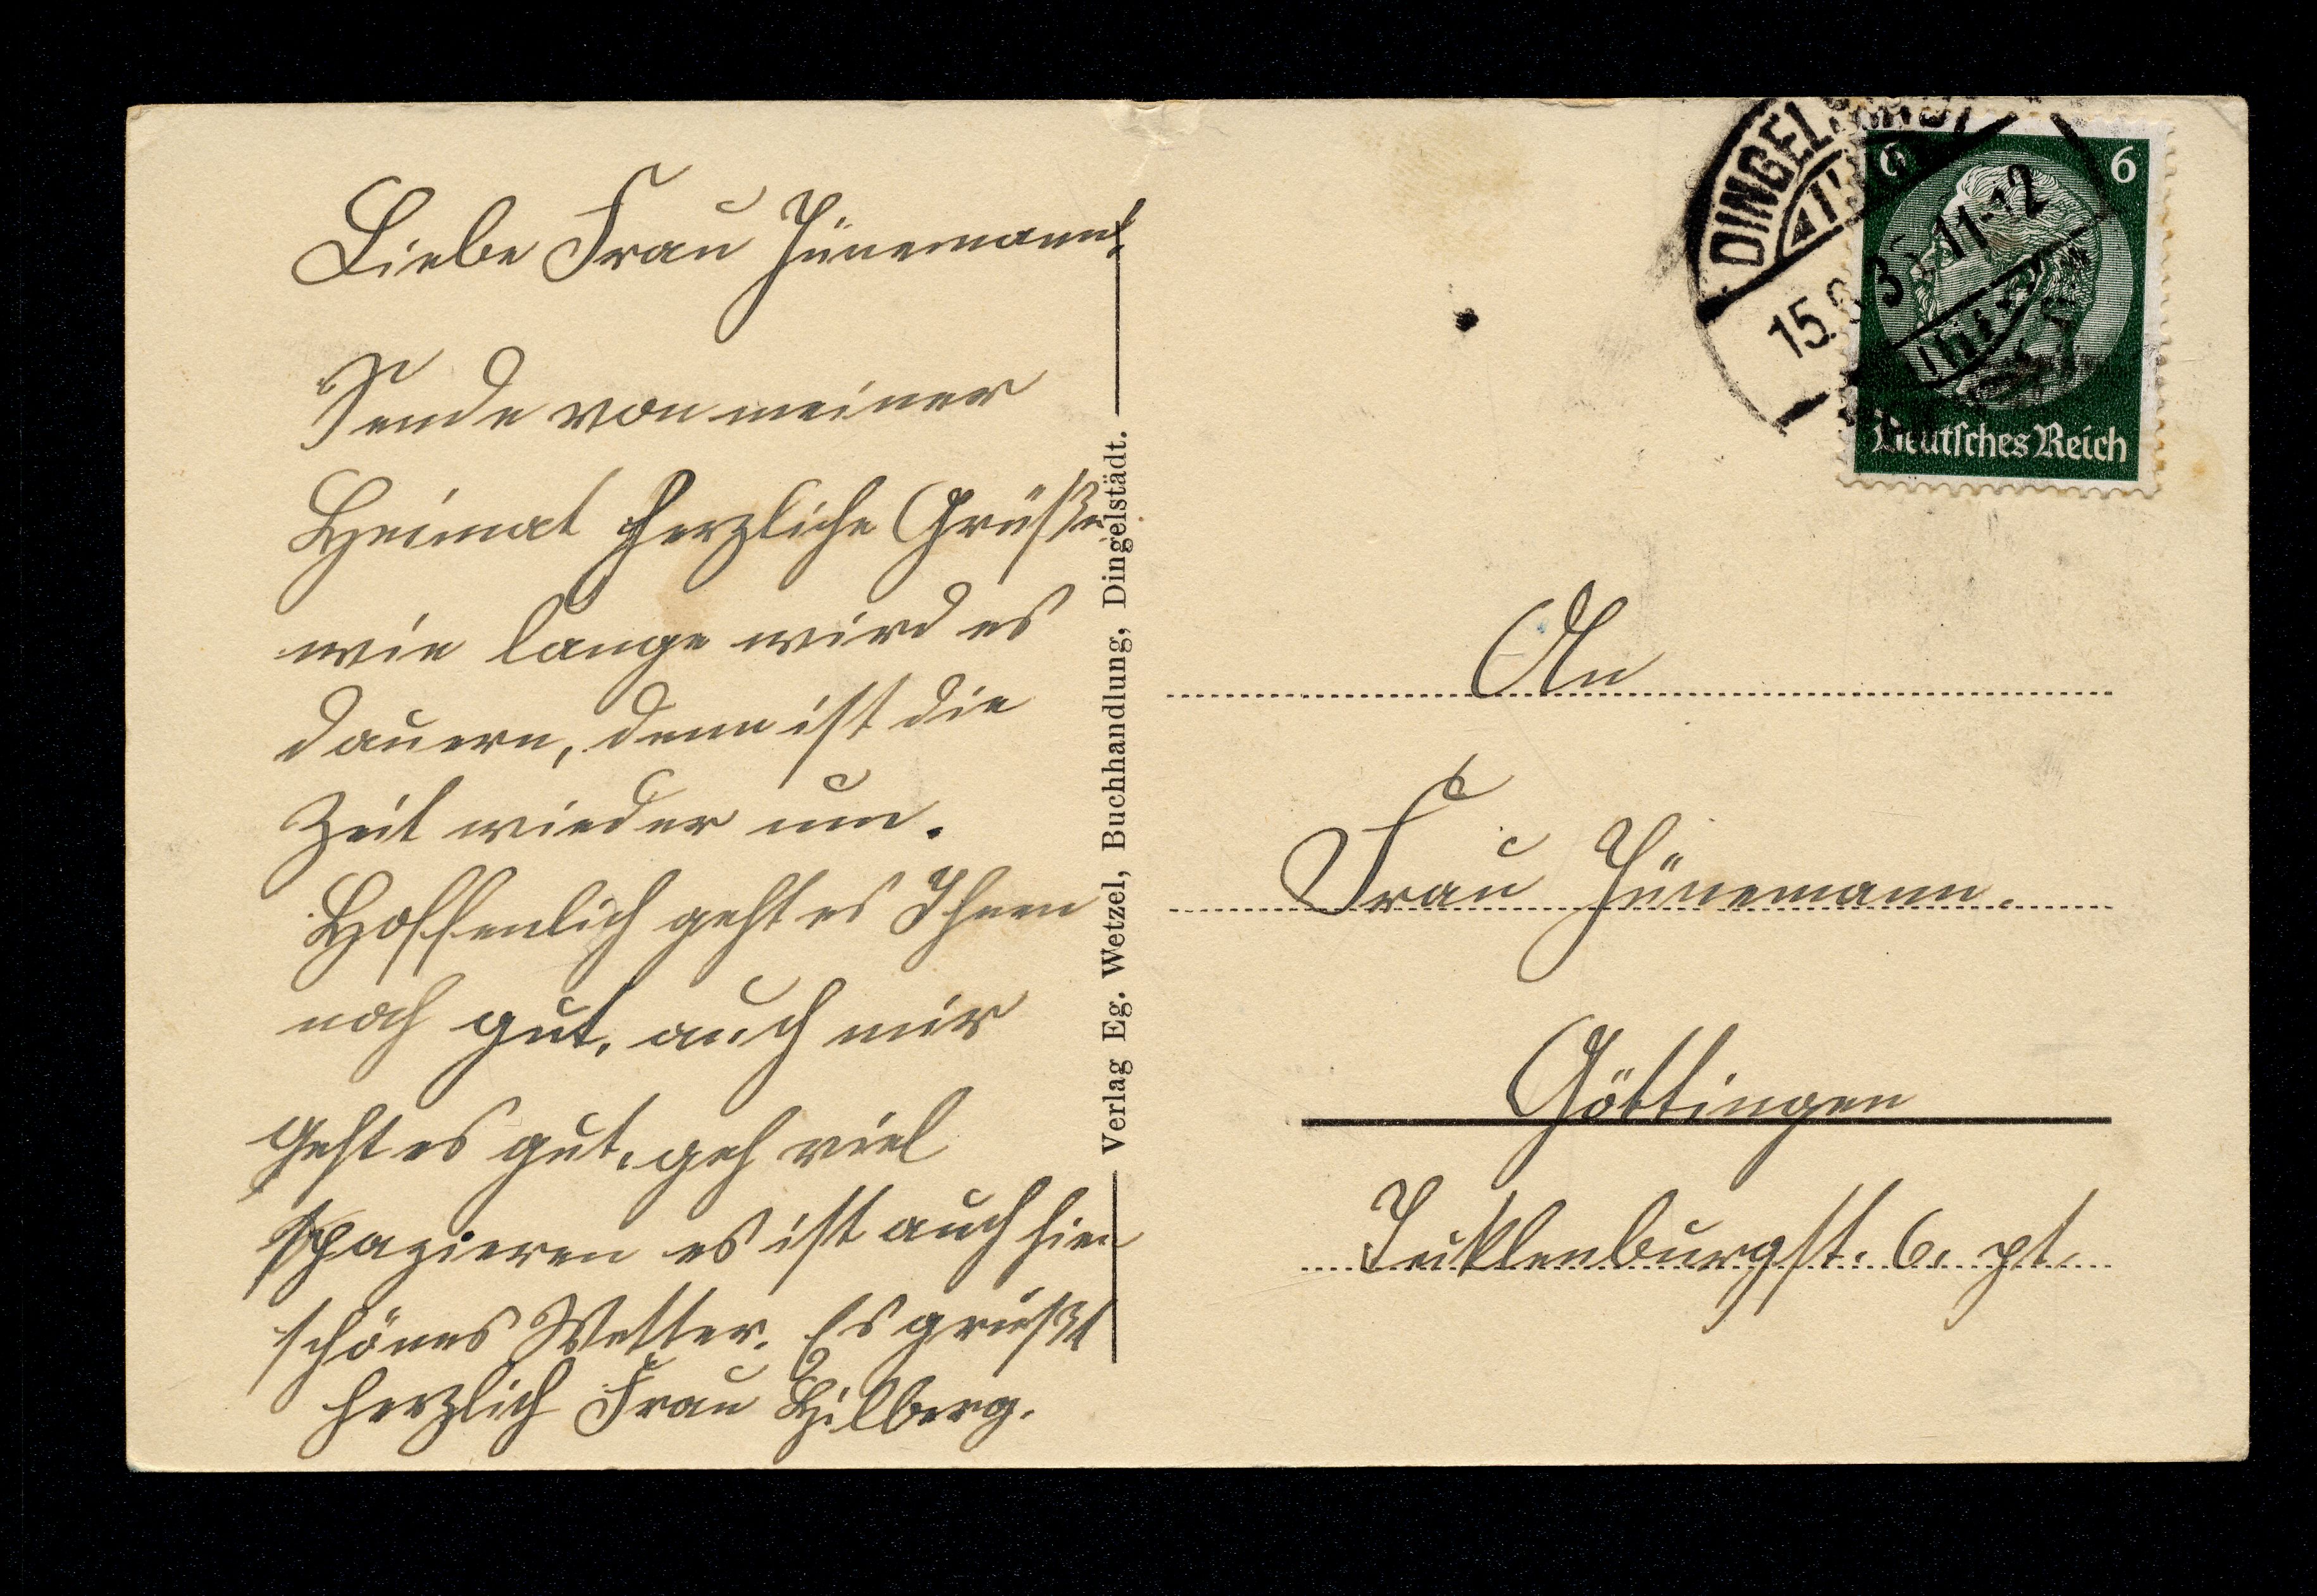 Liebe Frau Jünemann!
Sende von meiner
Heimat herzliche Grüße
wie lange wird es
dauern, dann ist die
Zeit wieder um.
Hoffenlich geht es Ihnen
noch gut, auch mir
geht es gut, geh viel
spazieren es ist auch hier
schönes Wetter. Es grüßt
herzlich Frau Hilberg.
Verlag Eg. Wetzel, Buchhandlung, Dingelstädt.
DINGELSTÄDT
15. 35.11-12
6 6
Deutsches Reich
An
Frau Jünemann.
Göttingen
6. pt.